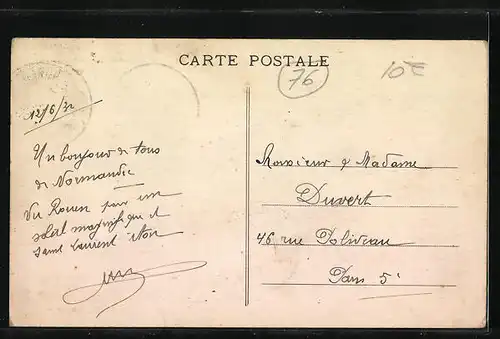 CARTE POSTALE
76
10€
12/6/32
Un bonjour de tous
de Normandie
Vu Rouen par un
soleil magnifique et
Saint Laurent
Monsieur & Madame
Duvert
46 rue Poliveau
Paris 5e